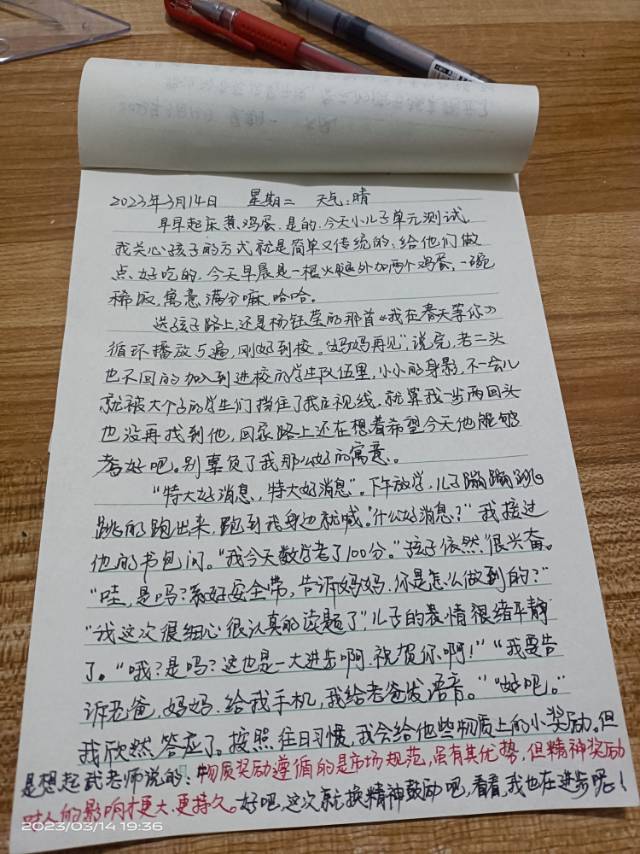 2023年3月14日 星期二 天气:晴
早早起床煮鸡蛋,是的,今天小儿子单元测试,
我关心孩子的方式就是简单又传统的,给他们做
点好吃的,今天早晨是一根火腿外加两个鸡蛋,一碗
稀饭,寓意满分嘛,哈哈。
送孩子路上,还是杨钰莹的那首《我在春天等你》
循环播放5遍,刚好到校。"妈妈再见",说完,老二头
也不回的加入到进校的学生队伍里,小小的身影,不一会儿
就被大个子的学生们挡住了我的视线,就算我一步两回头
也没再找到他,回家路上还在想着希望今天他能够
考好吧。别辜负了我那么好的寓意。
"特大好消息,特大好消息"。下午放学,儿子蹦蹦跳
跳的跑出来,跑到我身边就喊。"什么好消息?"我接过
他的书包问。"我今天数学考了100分。"孩子依然很兴奋。
"哇,是吗?系好安全带,告诉妈妈,你是怎么做到的?"
"我这次很细心很认真的读题了",儿子的表情很绪平静
了。"哦?是吗?这也是一大进步啊,祝贺你啊!""我要告
诉爸爸,妈妈,给我手机,我给老爸发语音。""好吧。"
我欣然答应了。按照往日习惯,我会给他些物质上的小奖励。但
是想起武老师说的:物质奖励遵循的是市场规范,虽有其优势,但精神奖励
对人的影响才更大、更持久。好吧,这次就换精神鼓励吧,看看,我也在进步呢!
2023/03/14 19:36